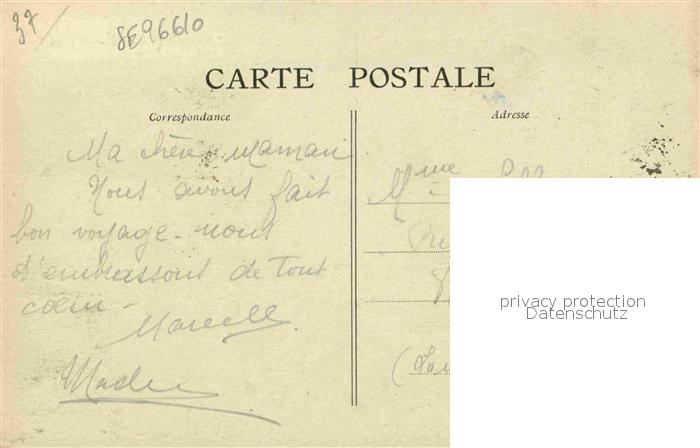 37
SE96610
CARTE POSTALE
Correspondance
Adresse
Ma chère Maman
Nous avons fait
bon voyage - nous
t'embrassons de tout
cœur -
Marcelle
Mme
privacy protection
Datenschutz